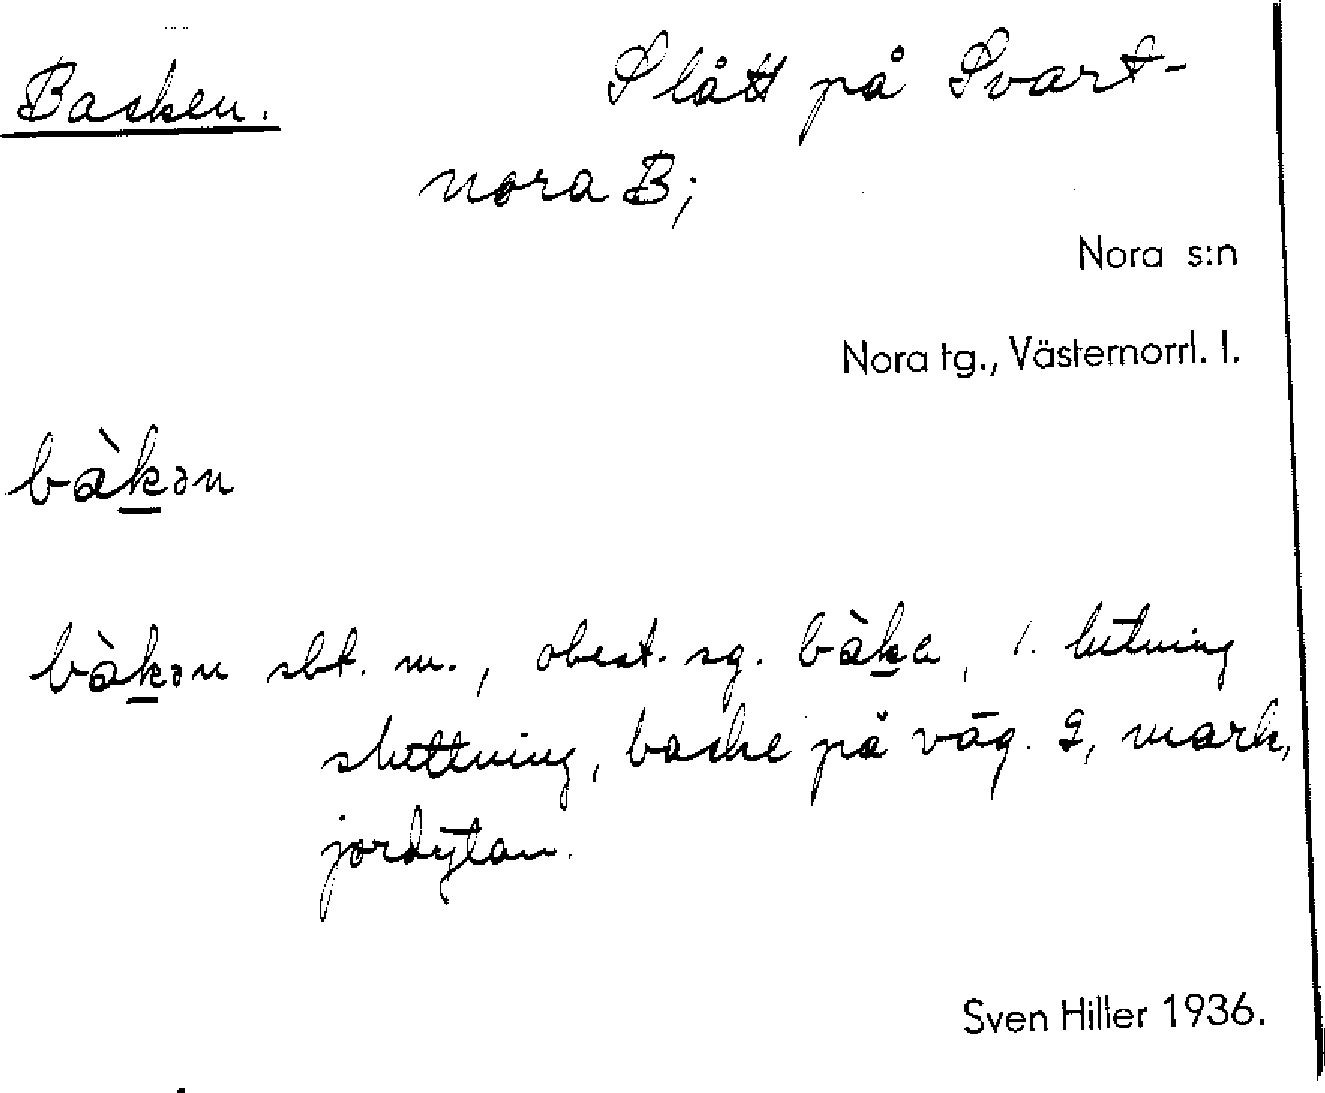 Backen. Slått på Svart-
nora B;
Nora s:n
Nora tg., Västernorrl. l.
bàkən
bàkən sbt. m., obest. sg. bàka, 1. lutning
sluttning, backe på väg. 2, mark,
jordytan.
Sven Hiller 1936.